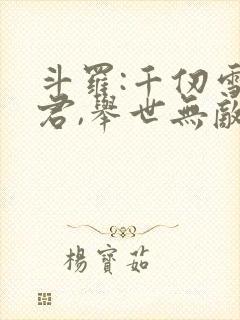 斗羅:千仞雪
君,舉世無敵
楊寶茹